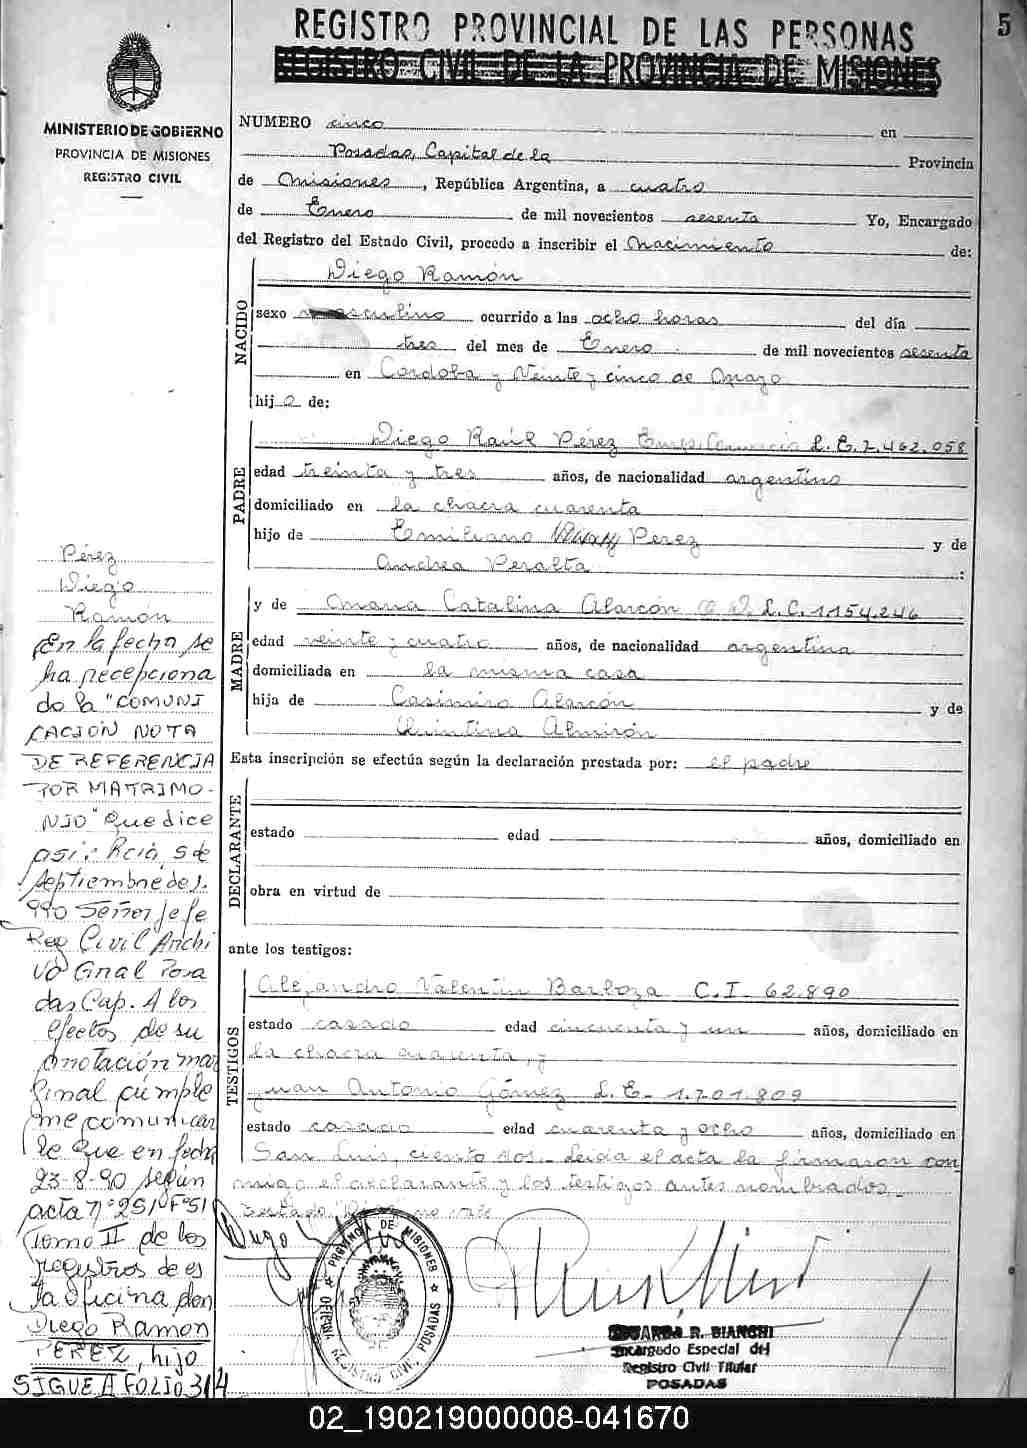 REGISTRO PROVINCIAL DE LAS PERSONAS
5
REGISTRO CIVIL DE LA PROVINCIA DE MISIONES
MINISTERIO DE GOBIERNO
PROVINCIA DE MISIONES
REGISTRO CIVIL
NUMERO cinco en
Posadas, Capital de la Provincia
de Misiones, República Argentina, a cuatro
de Enero de mil novecientos sesenta Yo, Encargado
del Registro del Estado Civil, procedo a inscribir el Nacimiento de:
NACIDO
Diego Ramón
sexo masculino ocurrido a las ocho horas del día
tres del mes de Enero de mil novecientos sesenta
en Cordoba y Veinte y cinco de Mayo
hijo de:
PADRE
Diego Raúl Pérez Emp. Comercio L. E. 7.462.058
edad treinta y tres años, de nacionalidad argentino
domiciliado en la chacra cuarenta
hijo de Emiliano Perez y de
Andrea Peralta :
MADRE
y de Maria Catalina Alarcón L.C. 1154.246
edad veinte y cuatro años, de nacionalidad argentina
domiciliada en la misma casa
hija de Casimiro Alarcón y de
Quintina Almirón
Esta inscripción se efectúa según la declaración prestada por: el padre
DECLARANTE
estado edad años, domiciliado en
obra en virtud de
ante los testigos:
TESTIGOS
Alejandro Valentin Barboza C.I. 62.890
estado casado edad cincuenta y un años, domiciliado en
la chacra cuarenta, y
Juan Antonio Gómez L.E. 1.701.809
estado casado edad cuarenta y ocho años, domiciliado en
San Luis, ciento dos. Leida el acta la firmaron con
migo el declarante y los testigos antes nombrados.
no vale
Pérez
Diego
Ramón
En la fecha se
ha recepciona
do la "COMUNI
CACION NOTA
DE REFERENCIA
POR MATRIMO-
NIO" que dice
asi: Pcia, 5 de
septiembre de 1.
990 Señor Jefe
Reg Civil Archi
vo Gral Posa
das Cap. A los
efectos de su
anotación mar
ginal cumple
me comunicar
le que en fecha
23-8-90 según
acta nº 251 Fº51
Tomo II de los
registros de es
ta oficina don
Diego Ramon
PEREZ, hijo
SIGUE A FOLIO 314
PROVINCIA DE MISIONES
OFICINA REGISTRO CIVIL, POSADAS
R. BIANCHI
Encargado Especial del
Registro Civil Titular
POSADAS
02_190219000008-041670